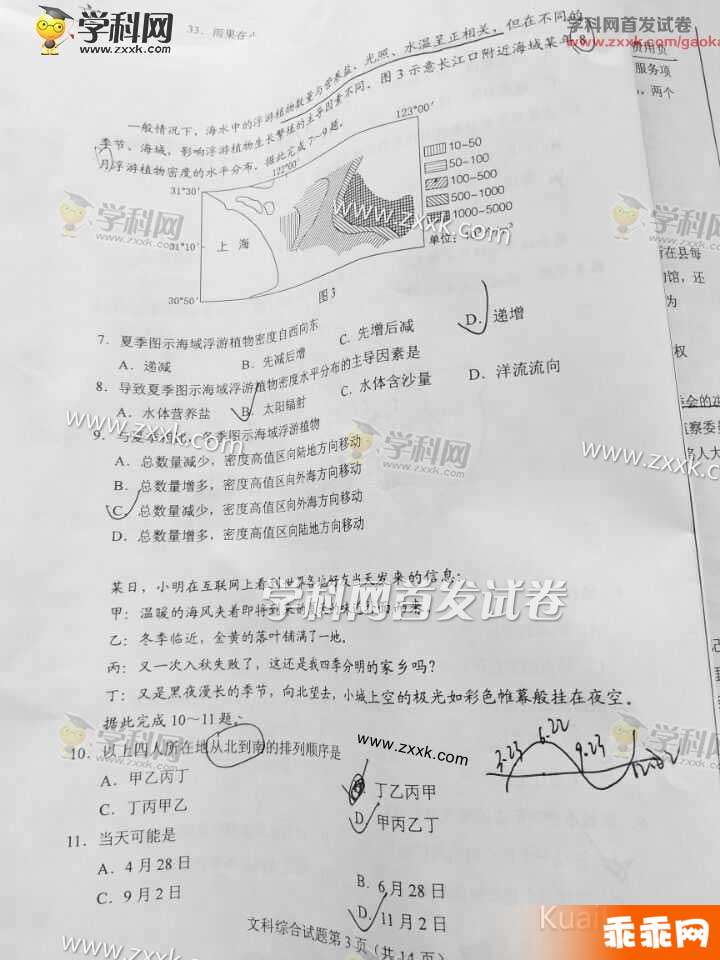 33．雨果在
学科网
www.zxxk.com
学科网首发试卷
www.zxxk.com/gaoka
费用贯
服务项
，两个
一般情况下，海水中的浮游植物数量与营养盐、光照、水温呈正相关，但在不同的
季节、海域，影响浮游植物生长繁殖的主导因素不同。图3示意长江口附近海域某年8
月浮游植物密度的水平分布。据此完成7~9题。
122°00′
123°00′
31°30′
31°10′
30°50′
上海
10~50
50~100
100~500
500~1000
1000~5000
单位：
图3
7．夏季图示海域浮游植物密度自西向东
A．递减
B．先减后增
C．先增后减
D．递增
8．导致夏季图示海域浮游植物密度水平分布的主导因素是
A．水体营养盐
B．太阳辐射
C．水体含沙量
D．洋流流向
9．与夏季相比，冬季图示海域浮游植物
A．总数量减少，密度高值区向陆地方向移动
B．总数量增多，密度高值区向外海方向移动
C．总数量减少，密度高值区向外海方向移动
D．总数量增多，密度高值区向陆地方向移动
某日，小明在互联网上看到世界各地好友当天发来的信息：
甲：温暖的海风夹着即将到来的
乙：冬季临近，金黄的落叶铺满了一地。
丙：又一次入秋失败了，这还是我四季分明的家乡吗？
丁：又是黑夜漫长的季节，向北望去，小城上空的极光如彩色帷幕般挂在夜空。
据此完成10~11题。
10．以上四人所在地从北到南的排列顺序是
A．甲乙丙丁
B．丁乙丙甲
C．丁丙甲乙
D．甲丙乙丁
3.23
6.22
9.23
12.22
11．当天可能是
A．4月28日
B．6月28日
C．9月2日
D．11月2日
文科综合试题第3页（共14页）
学科网
www.zxxk.com
学科网首发试卷
所在县每
的馆，还
为
权
委会的
监察委
名人大
www.zxxk.com
Kuai
乖乖网